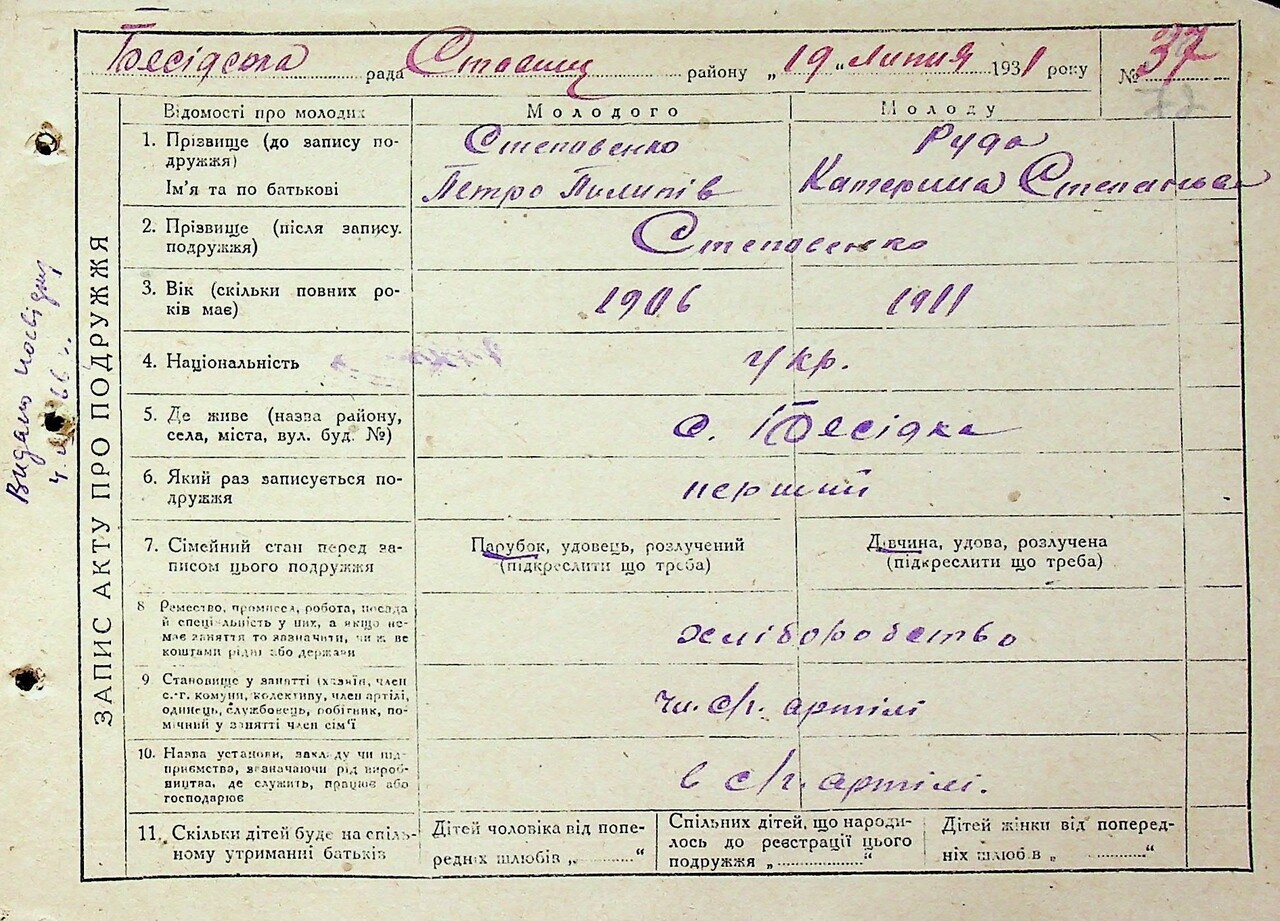 Бесідська рада Ставищ району „19“ Липня 1931 року № 37
72
ЗАПИС АКТУ ПРО ПОДРУЖЖЯ
Видано посвідку
Відомості про молодих Молодого Молоду
1. Прізвище (до запису по- Степавенко Руда
дружжя)
Ім'я та по батькові Петро Пилипів Катерина Степанова
2. Прізвище (після запису. Степасенко
подружжя)
3. Вік (скільки повних ро- 1906 1911
ків має)
4. Національність укр.
5. Де живе (назва району, с. Бесідка
села, міста, вул. буд. №)
6. Який раз записується по- перший
дружжя
7. Сімейний стан перед за- Парубок, удовець, розлучений Дівчина, удова, розлучена
писом цього подружжя (підкреслити що треба) (підкреслити що треба)
8 Ремество, промисел, робота, посада
й спеціяльність у них, а якщо не-
має заняття то зазначити, чи ж ве хліборобство
коштами рідні або держави
9 Становище у занятті (хазяїн, член
с.-г. комуни, колективу, член артілі, чл. с/г. артілі
одинець, службовець, робітник, по-
мічний у занятті член сім'ї
10. Назва установи, закладу чи під-
приємства, зазначаючи рід вироб- в с/г. артілі.
ництва, де служить, працює або
господарює
11. Скільки дітей буде на спіль- Дітей чоловіка від попе- Спільних дітей, що народи- Дітей жінки від поперед-
ному утриманні батьків редніх шлюбів „ “ лось до реєстрації цього ніх шлюбів „ “
подружжя „ “